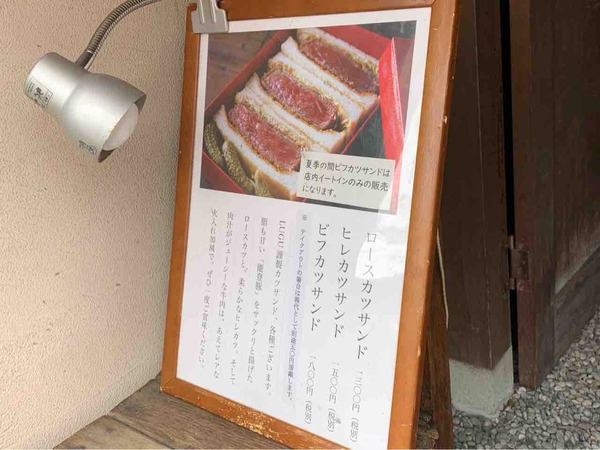 夏季の間ビフカツサンドは
店内イートインのみの販売
になります。
ロースカツサンド 一二〇〇円（税別）
ヒレカツサンド 一五〇〇円（税別）
ビフカツサンド 一八〇〇円（税別）
※ テイクアウトの場合は箱代として別途五〇円頂戴します。
LUGU謹製カツサンド、各種ございます。
脂も甘い「能登豚」をサックリと揚げた
ロースカツと、柔らかなヒレカツ。そして、
肉汁がジューシーな牛肉は、あえてレアな
火入れ加減で。ぜひ一度ご賞味ください。